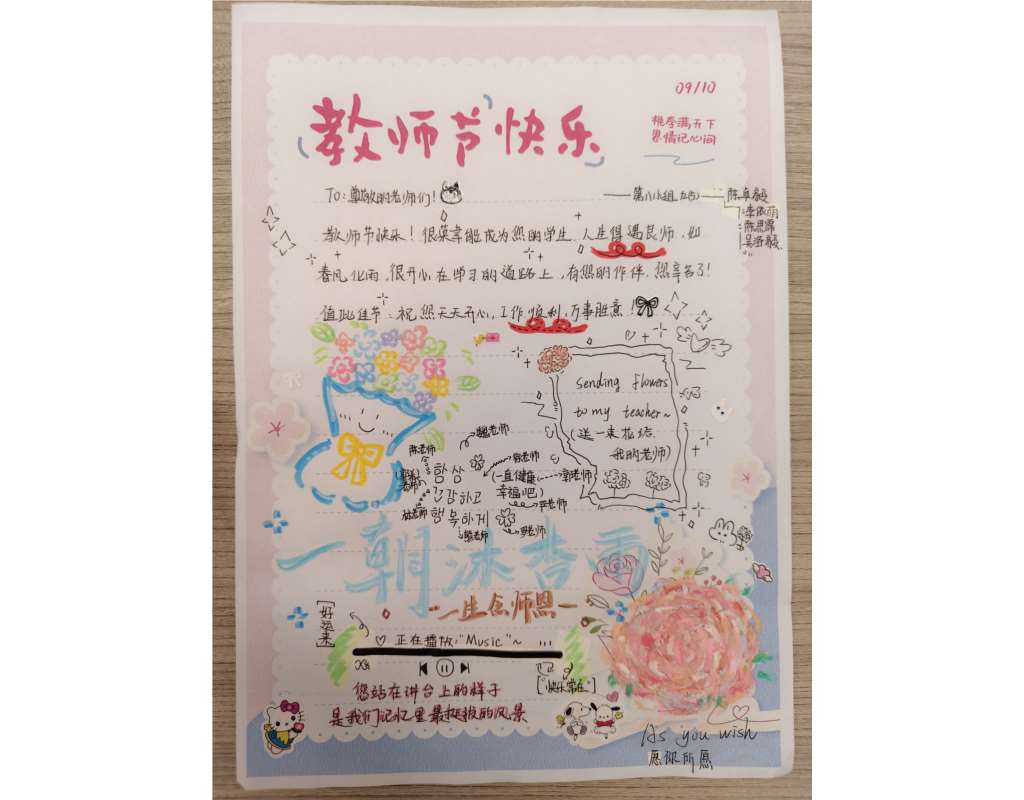 09/10
教师节快乐
桃李满天下
恩情记心间
TO：尊敬的老师们！
——第八小组
陈卓毅
教师节快乐！很荣幸能成为您的学生，人生得遇良师，如
春风化雨，很开心在学习的道路上，有您的作伴，您辛苦了！
值此佳节：祝您天天开心，工作顺利，万事胜意！
sending flowers
to my teacher~
(送一束花给
我的老师)
魏老师
陈老师
항상
(一直健康
郭老师
건강하고
幸福吧)
林老师
행복하게
罗老师
一朝沐杏雨
一生念师恩
[好运来]
♡ 正在播放："Music"~ ...
["快乐常在"]
您站在讲台上的样子
是我们记忆里最挺拔的风景
As you wish
愿你所愿